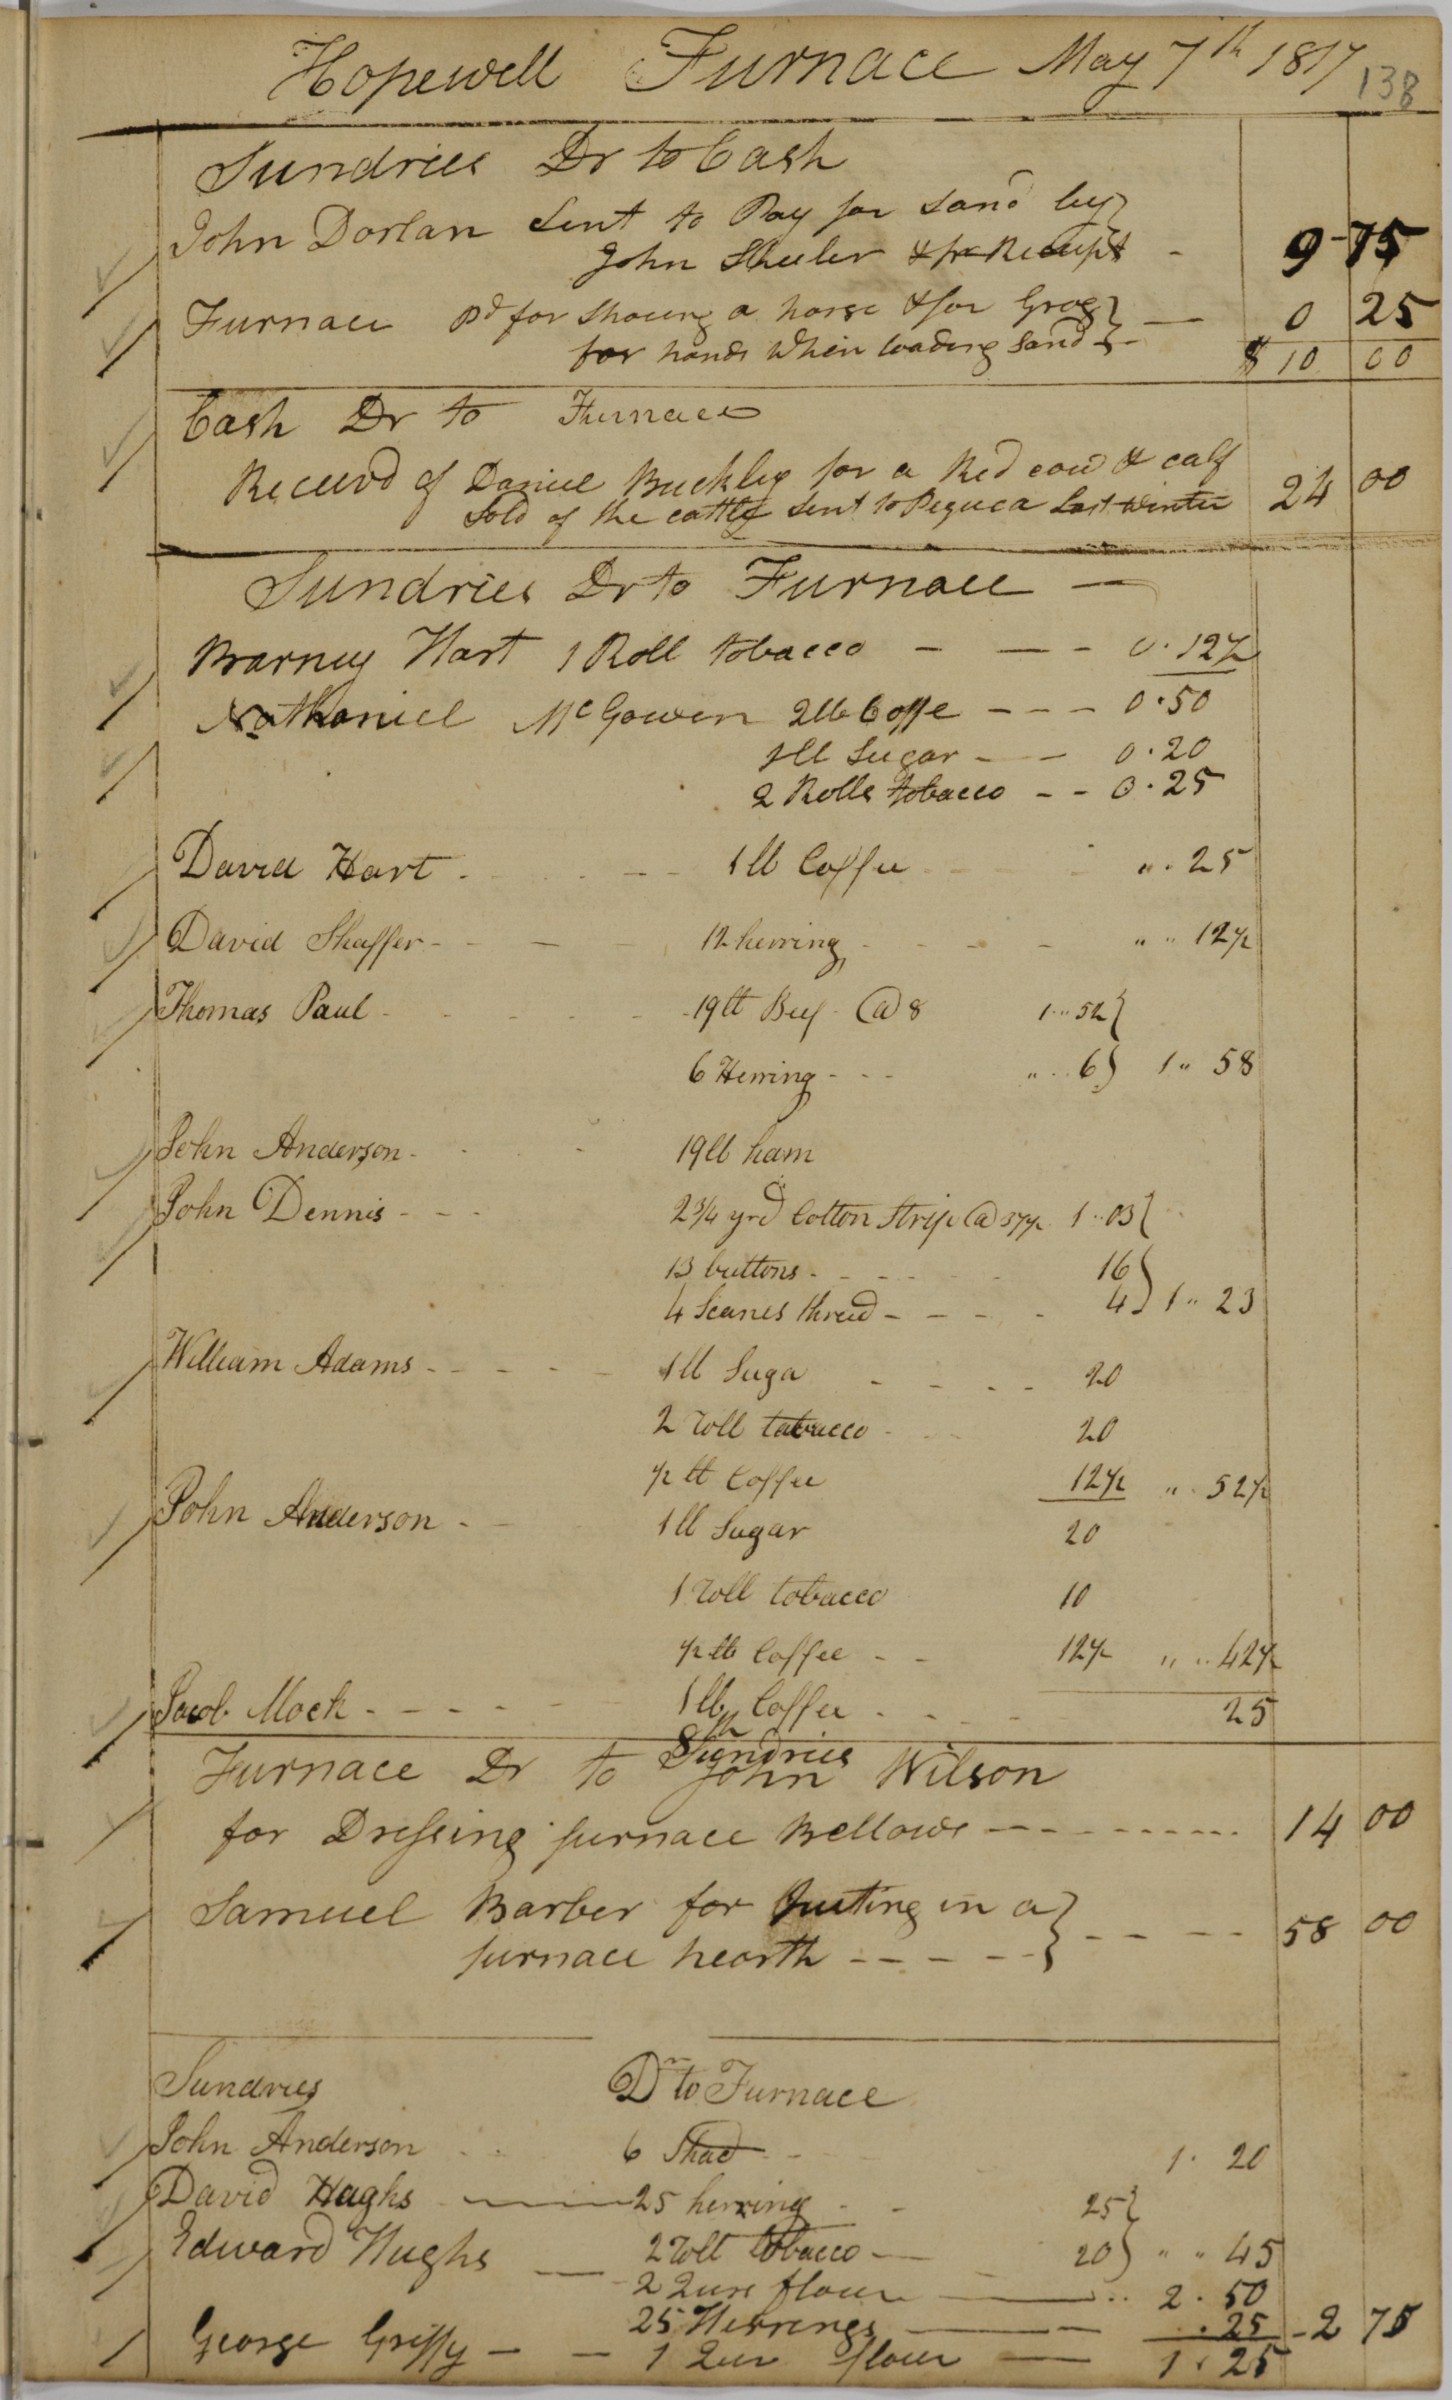 Hopewell Furnace May 7th 1817 138
Sundries Dr to Cash
John Dorlan Sent to Pay for sand by }
John Sheeler & pr Receipt - 9-75
Furnace pd for Shoeing a horse & for Grog }
for hands When loading Sand } - 0 25
$ 10 00
Cash Dr to Furnace
Receivd of Daniel Buckley for a Red cow & calf
Sold of the cattle Sent to Pequea Last Winter 24 00
Sundries Dr to Furnace —
Barney Hart 1 Roll tobacco - — - 0.12½
Nathaniel McGowen 2lb Coffe - - - 0.50
1lb Sugar - - 0.20
2 Rolls tobacco - - 0.25
David Hart - - 1 lb Coffee " . 25
David Shaffer - - - 12 herring - - - " " 12½
Thomas Paul - - - 19lb Beef @ 8 1 " 52 }
6 Herring - - - " . 6 } 1 " 58
John Anderson - 19lb ham
John Dennis - - - 2¾ yrd Cotton Stripe @ 37½ 1 " 03 }
13 buttons - - - 16 }
4 Scanes thred - - - - 4 } 1 " 23
William Adams - - - - 1 lb Suga - - - - 20
2 roll tobacco - 20
½ lb Coffee 12½ " . 52½
John Anderson - - 1 lb Sugar 20
1 roll tobacco 10
½ lb Coffee - - 12½ " " 42½
Jacob Mock - - - - 1 lb Coffee - - 25
8th
Furnace Dr to Sundries
John Wilson
for Dressing furnace Bellows - - - - - - 14 00
Samuel Barber for Puting in a }
furnace hearth - - - - } - - - - 58 00
Sundries Dr to Furnace
John Anderson 6 Shad - - 1. 20
David Haghs — 25 herring - - 25 }
2 roll tobacco — 20 } " " 45
Edward Hughs — 2 Qurs flour — 2. 50
25 Herrings — .25 - 2 75
George Griffy - - 1 Qur flour — 1. 25